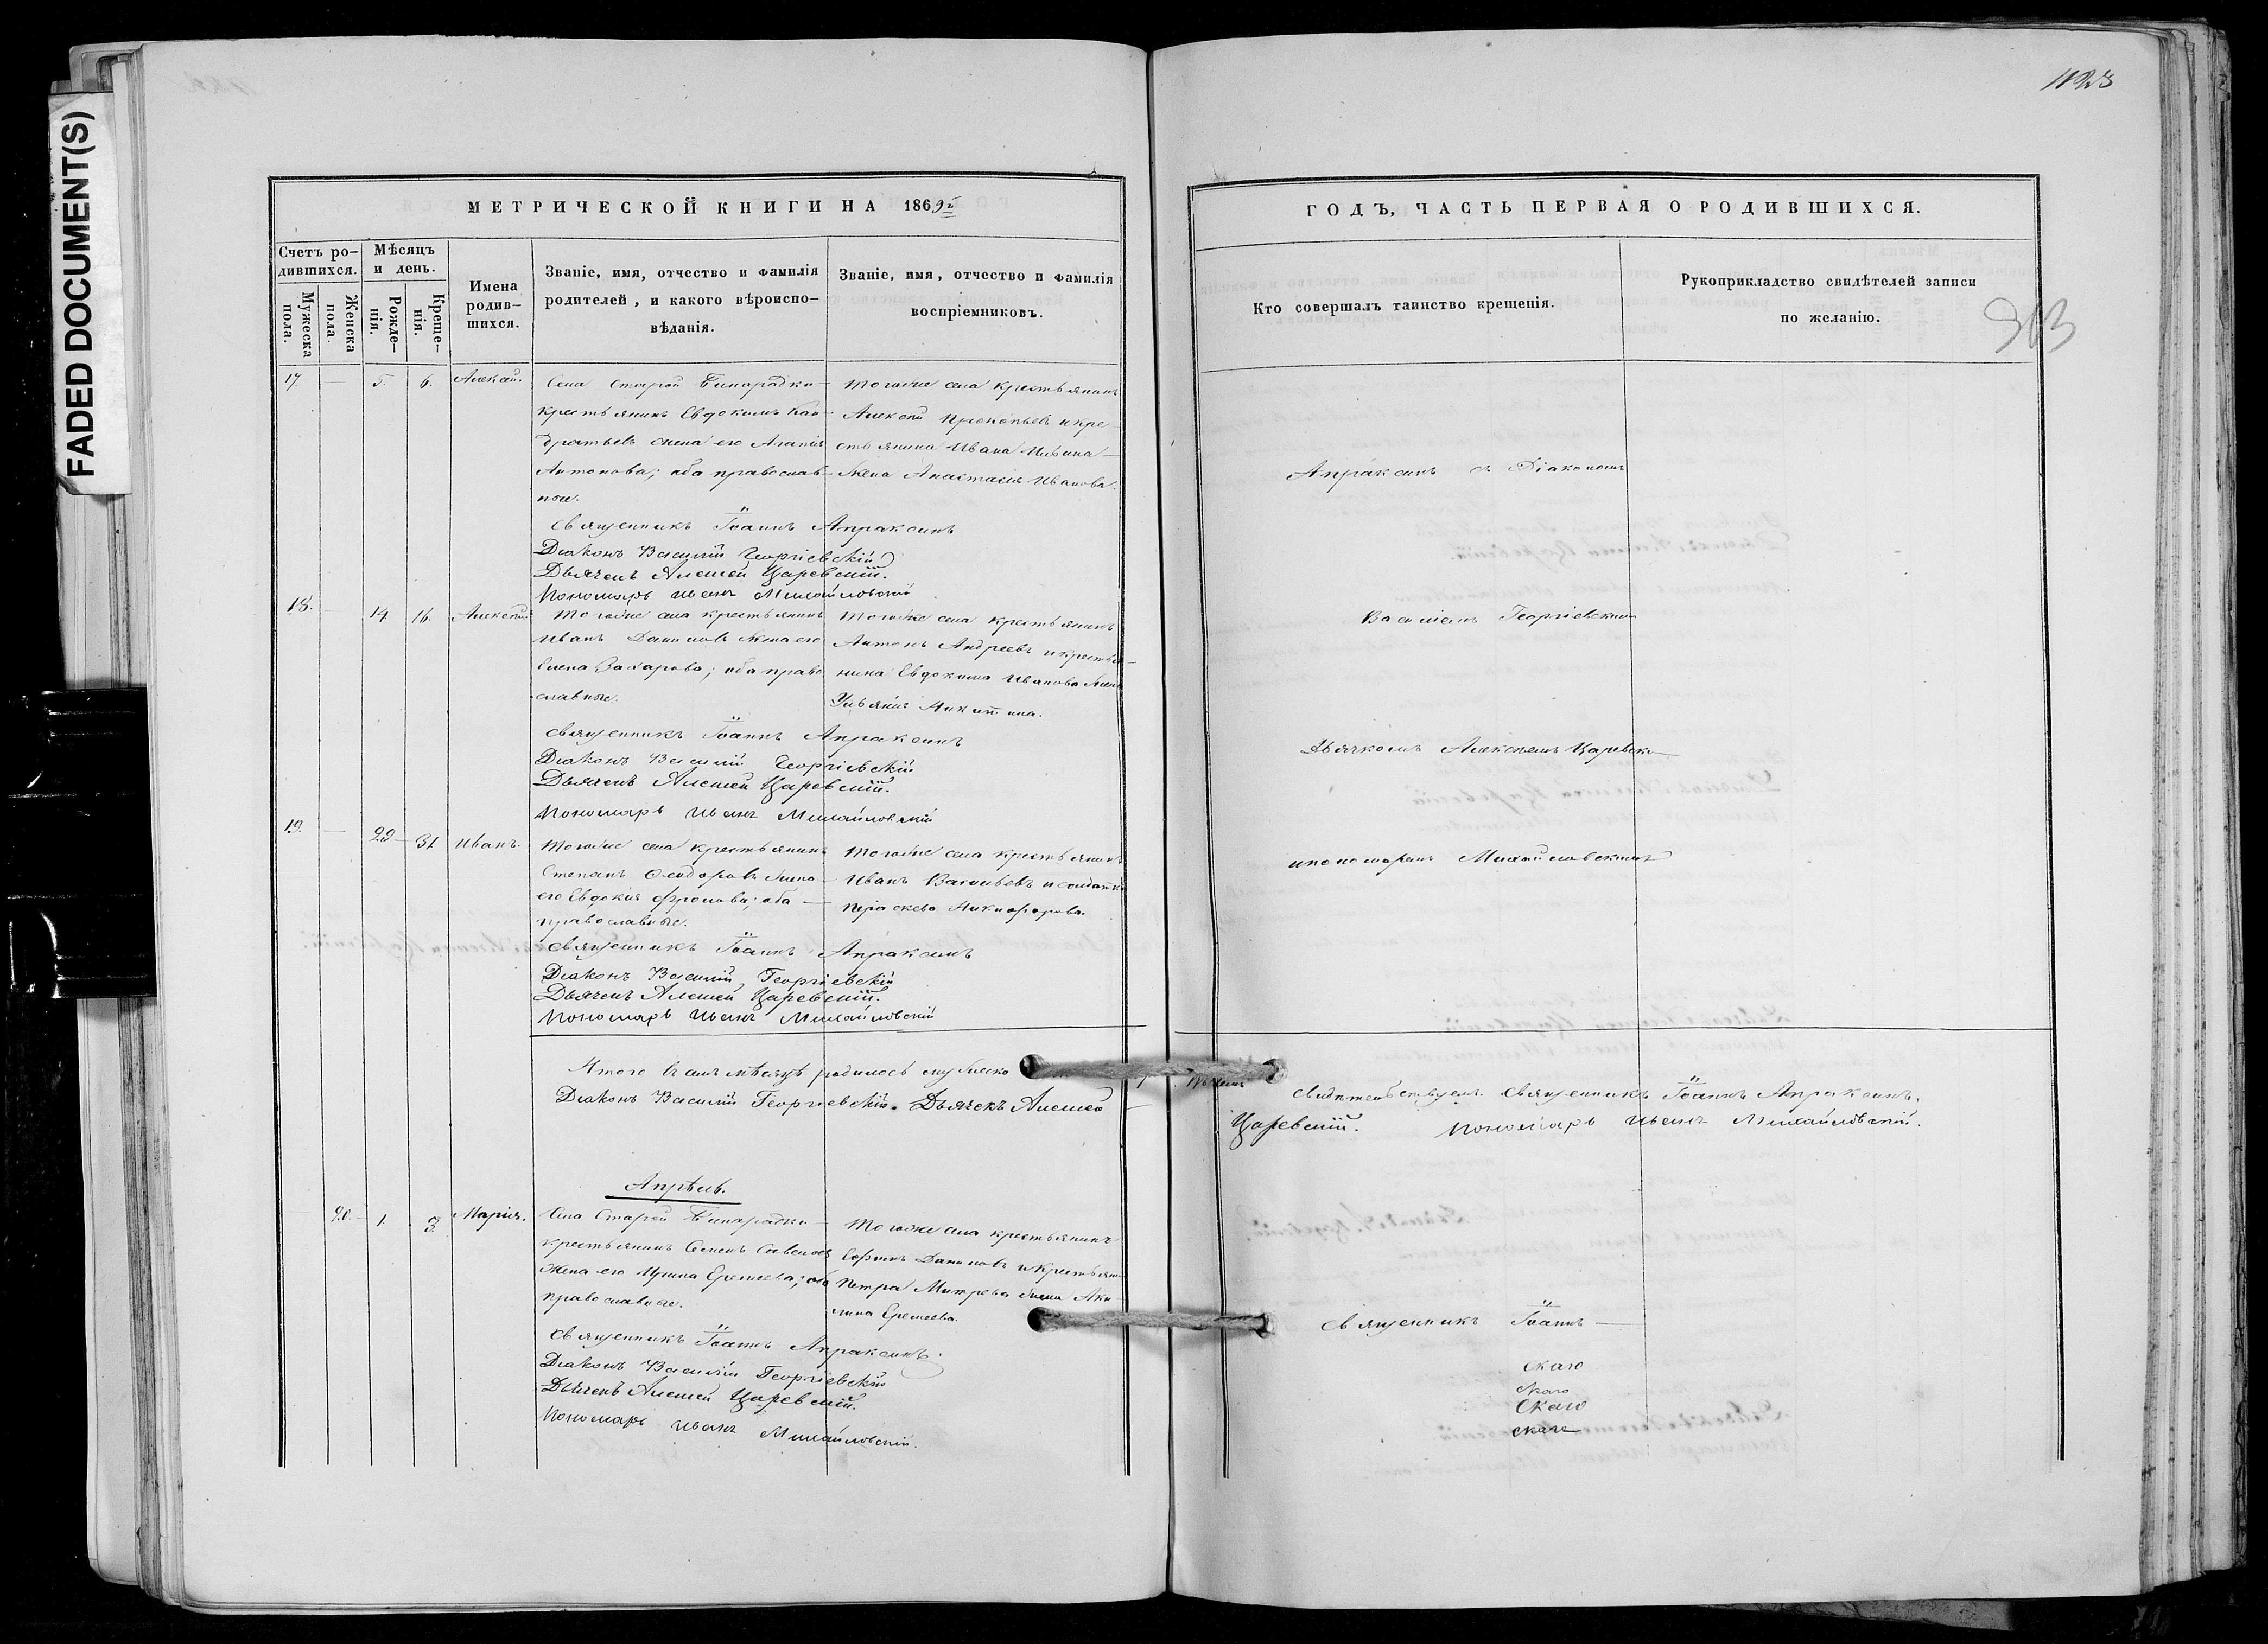 FADED DOCUMENT(S)
1123
МЕТРИЧЕСКОЙ КНИГИ НА 1869й
Счетъ ро-
дившихся.
Мужеска
пола.
Женска
пола.
Мѣсяцъ
и день.
Рожде-
нія.
Креще-
нія.
Имена
родив-
шихся.
Званіе, имя, отчество и фамилія
родителей, и какого вѣроиспо-
вѣданія.
Званіе, имя, отчество и фамилія
воспріемниковъ.
17 — 5. 6. Алексѣй.
Села Старой Бинарадки
крестьянинъ Евдокимъ Кон-
дратьевъ жена его Агапія
Антонова; оба православ-
ные.
Тогоже села крестьянинъ
Алексѣй Прокопьевъ и кре
стьянина Ивана
жена Анастасія Иванова.
Священникъ Іоаннъ Апраксинъ
Діаконъ Василій Георгіевскій
Дьячекъ Алексей Царевскій.
Пономарь Иванъ Михайловскій
18. — 14 16. Алексѣй
Тогоже села крестьянинъ
Иванъ Даниловъ жена его
Елена Захарова; оба право
славные.
Тогоже села крестьянинъ
Антонъ Андреевъ и крестья-
нина Евдокима Иванова жена
Никитина.
Священникъ Іоаннъ Апраксинъ
Діаконъ Василій Георгіевскій
Дьячекъ Алексей Царевскій.
Пономарь Иванъ Михайловскій
19. — 29 31 Иванъ.
Тогоже села крестьянинъ
Степанъ Ѳеодоровъ жена
его Евдокія Фролова; оба
православные.
Тогоже села крестьянинъ
Иванъ Васильевъ и солдатка
Праскева Никифорова.
Священникъ Іоаннъ Апраксинъ
Діаконъ Василій Георгіевскій
Дьячекъ Алексей Царевскій.
Пономарь Иванъ Михайловскій
Итого въ семъ мѣсяцѣ родилось мужеска
Діаконъ Василій Георгіевскій. Дьячекъ Алексей
Апрѣль.
20. 1. 3 Марія.
Села Старой Бинарадки
крестьянинъ Семенъ Савельевъ
жена его Ирина Еремеева; оба
православные.
Тогоже села крестьянинъ
Даниловъ и крестьян
Петра Митрева жена Аку-
лина Еремеева.
Священникъ Іоаннъ Апраксинъ.
Діаконъ Василій Георгіевскій
Дьячекъ Алексей Царевскій.
Пономарь Иванъ Михайловскій.
ГОДЪ, ЧАСТЬ ПЕРВАЯ О РОДИВШИХСЯ.
Кто совершалъ таинство крещенія.
Рукоприкладство свидѣтелей записи
по желанію.
Апраксинъ съ Діакономъ
Василіемъ Георгіевскимъ
Дьячкомъ Алексѣемъ Царевск
и пономаремъ Михайловскимъ
Свидѣтельствуемъ. Священникъ Іоаннъ Апраксинъ.
Царевскій. Пономарь Иванъ Михайловскій.
Священникъ Іоаннъ
скаго
скаго
скаго
скаго